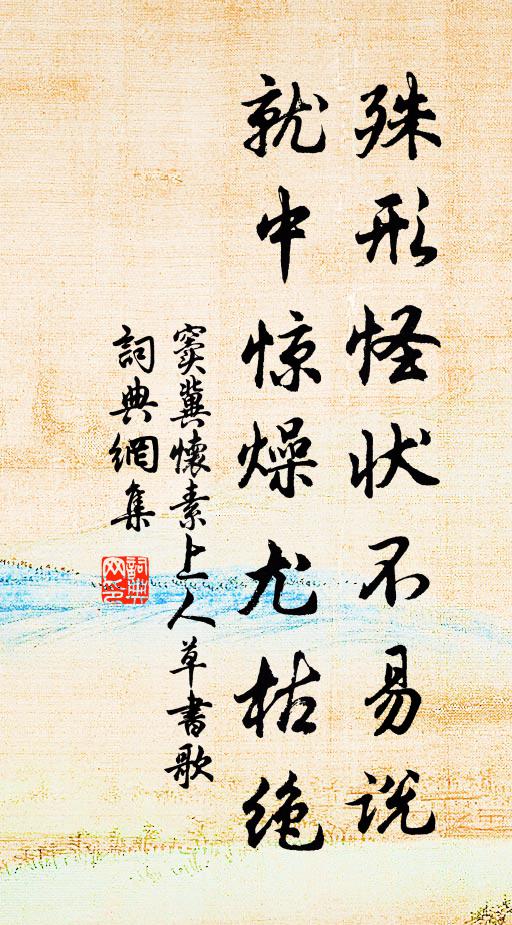 殊形怪状不易说
就中惊燥尤枯绝
窦冀懷素上人草書歌
詞典網集
詞典
网印